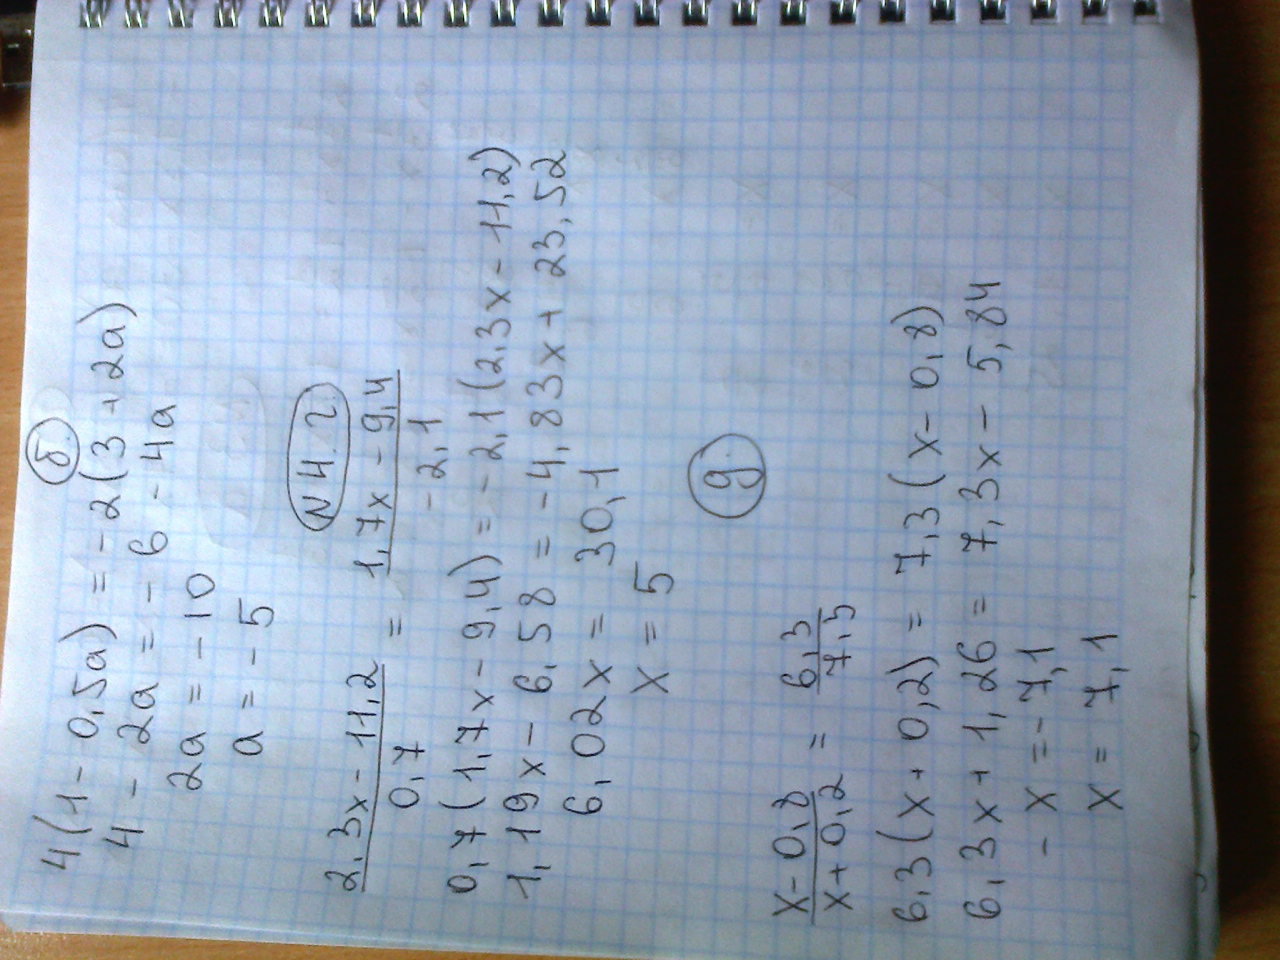 б.
4(1 - 0,5a) = -2(3 + 2a)
4 - 2a = - 6 - 4a
2a = - 10
a = - 5
N 4. г.
2,3x - 11,2 / 0,7 = 1,7x - 9,4 / -2,1
0,7(1,7x - 9,4) = -2,1(2,3x - 11,2)
1,19x - 6,58 = -4,83x + 23,52
6,02x = 30,1
x = 5
g.
x - 0,8 / x + 0,2 = 6,3 / 7,3
6,3(x + 0,2) = 7,3(x - 0,8)
6,3x + 1,26 = 7,3x - 5,84
- x = - 7,1
x = 7,1